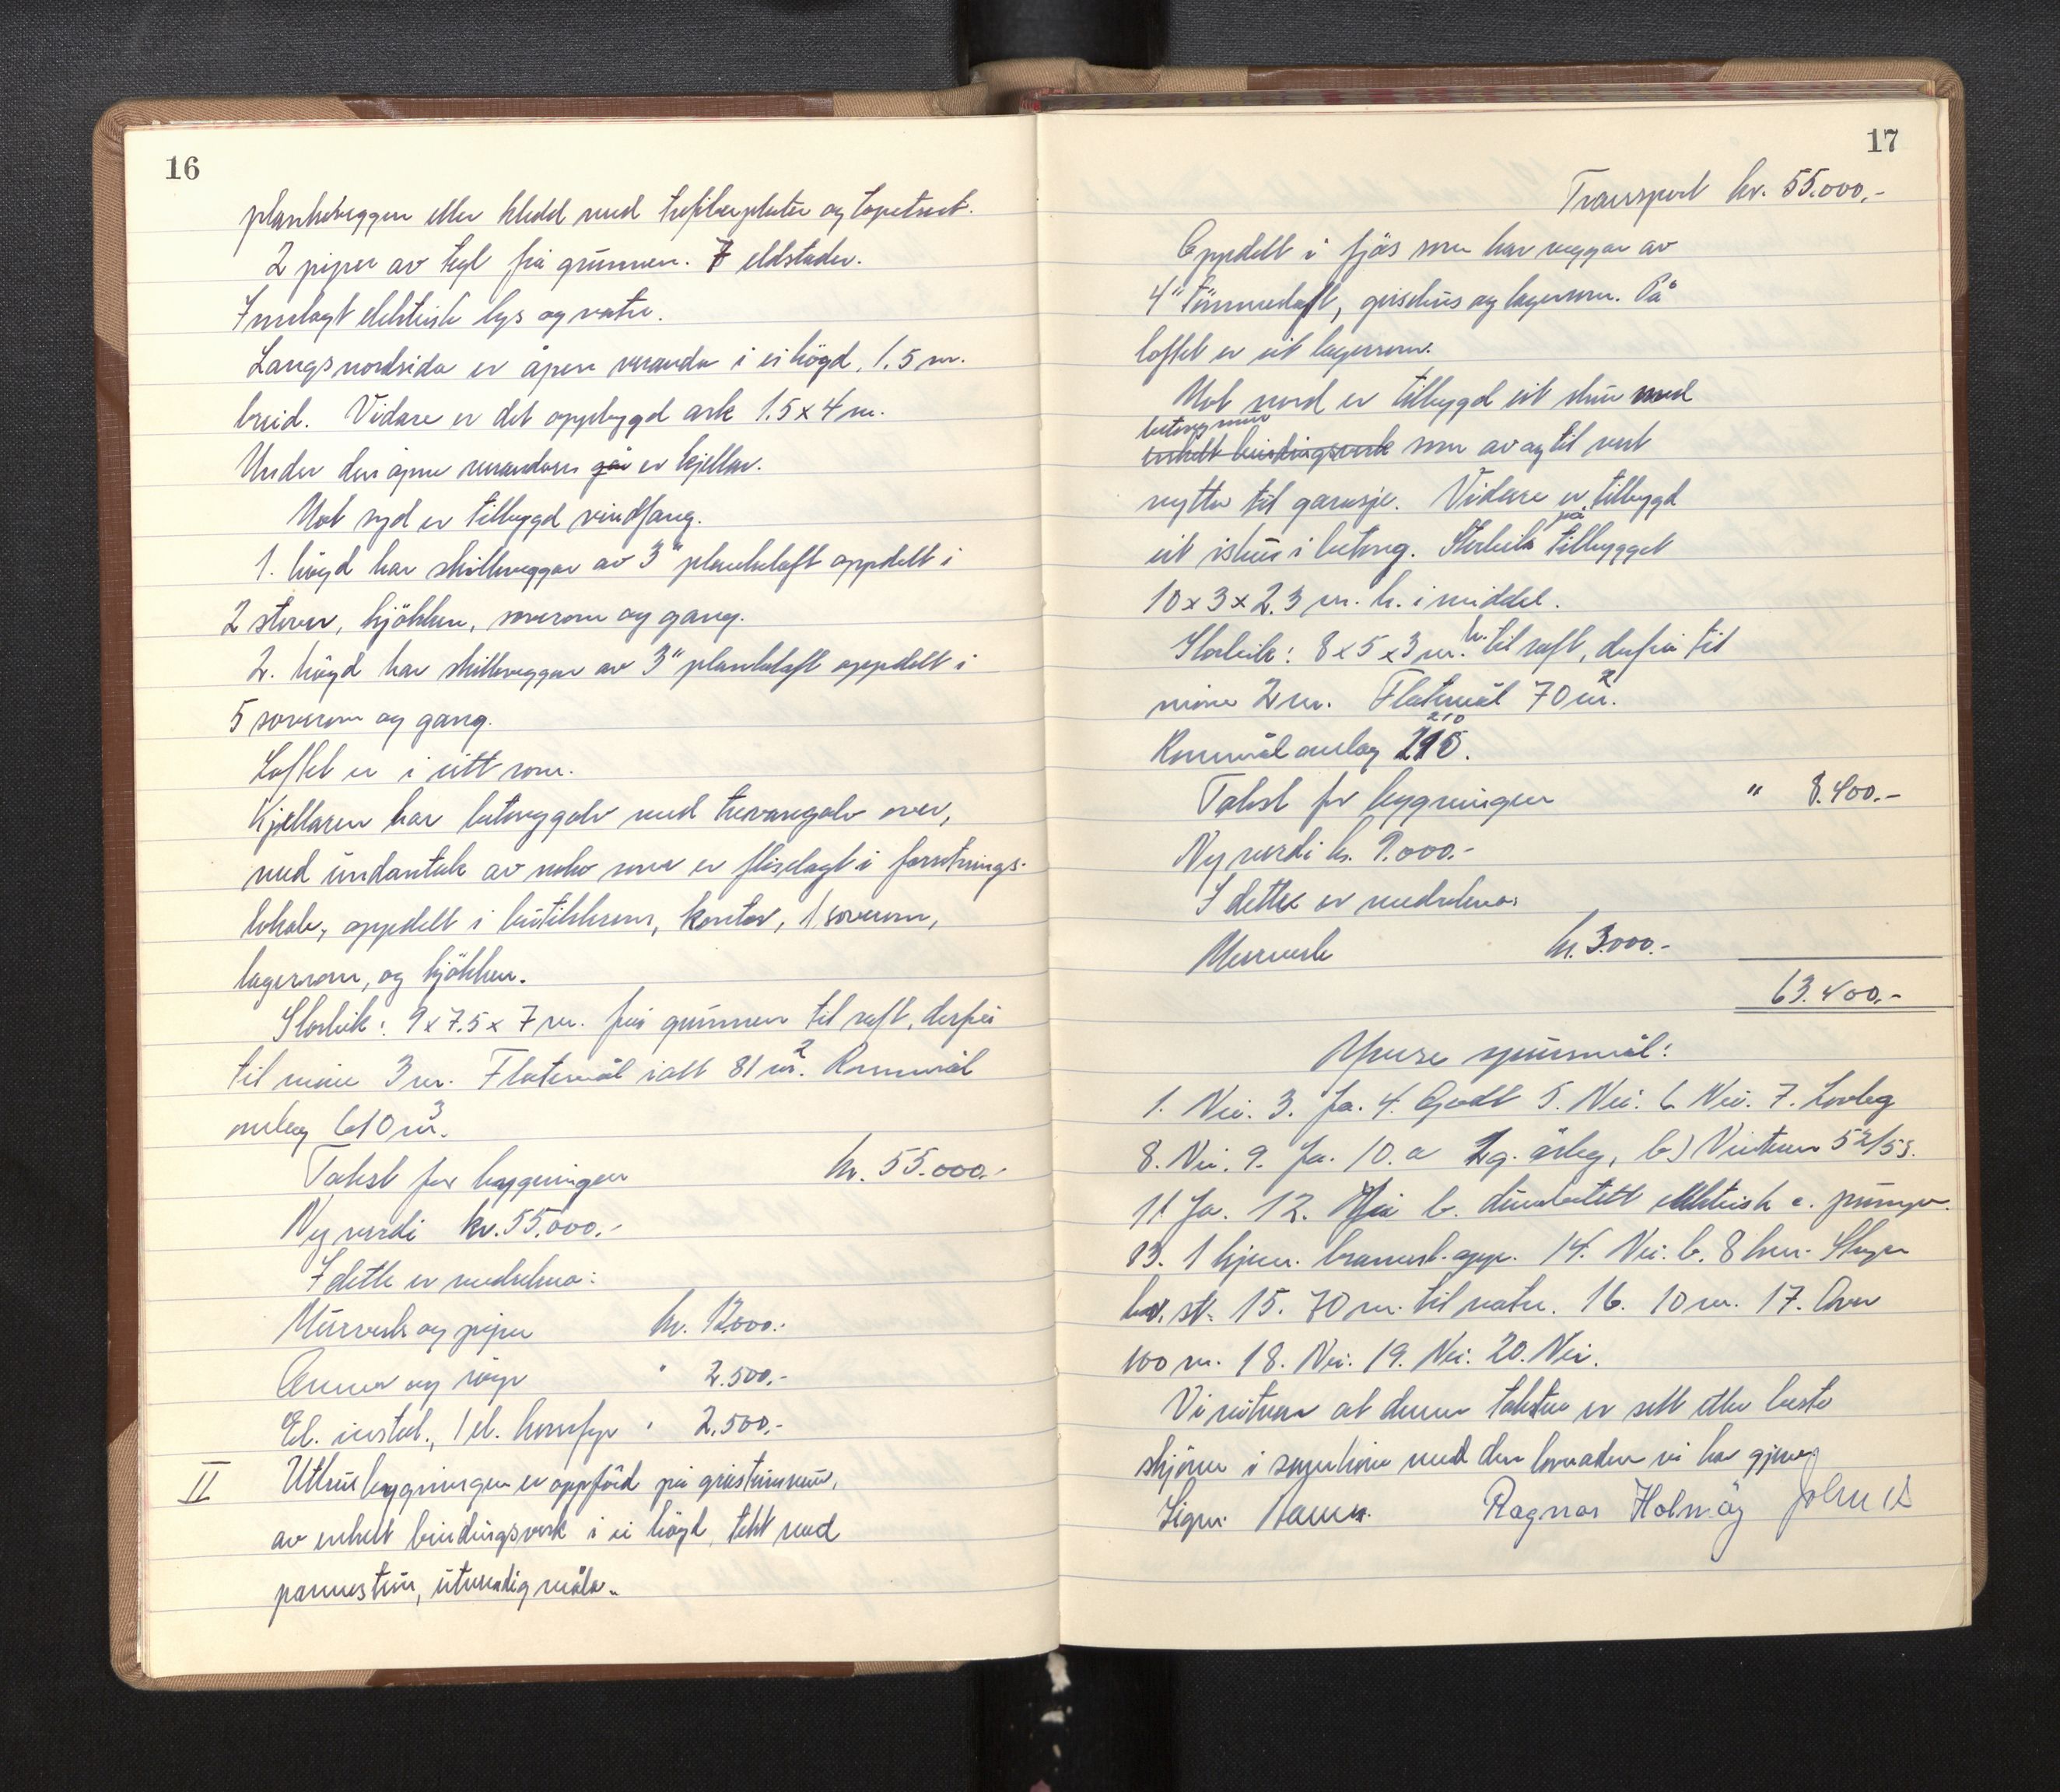 16
plankeveggen eller kledd med trefiberplater og tapetsert.
2 piper av tegl frå grunnen. 7 eldstader.
Innlagt elektrisk lys og vatn.
Langs nordsida er åpen veranda i ei högd, 1.5 m.
breid. Vidare er det oppbygd ark 1.5 x 4 m.
Under den åpne verandaen går er kjellar.
Mot syd er tilbygd vindfang.
1. högd har skilleveggar av 3" plankelaft oppdelt i
2 stover, kjökken, soverom og gang.
2. högd har skilleveggar av 3" plankelaft oppdelt i
5 soverom og gang.
Loftet er i eitt rom.
Kjellaren har betonggolv med trevaregolv over,
med undantak av noko som er fliselagt i forretnings-
lokale, oppdelt i butikkrom, kontor, 1 soverom,
lagerrom, og kjökken.
Storleik: 9 x 7.5 x 7 m. frå grunnen til raft, derfrå
til möne 3 m. Flatemål ialt 81 m². Rommål
omlag 610 m³.
Takst for bygningen kr. 55.000.-
Ny verdi kr. 55.000.-
I dette er medrekna:
Murverk og piper kr. 12.000.-
Omnar og " 2.500.-
El. instal., 1 el. komfyr " 2.500.-
II Uthusbygningen er oppförd på gråsteinsmur,
av enkelt bindingsverk i ei högd, tekt med
pannestein, utvendig måla.
17
Transport kr. 55.000,-
Oppdelt i fjös som har veggar av
4" tömmerlaft, grisehus og lagerrom. På
loftet er eit lagerrom.
Mot nord er tilbygd eit skur med
betongmur
enkelt bindingsverk som av og til vert
nytta til garasje. Vidare er tilbygd
eit ishus i betong. Storleik på tilbygget
10 x 3 x 2.3 m. h. i middel.
Storleik: 8 x 5 x 3 m. h. til raft, derfrå til
möne 2 m. Flatemål 70 m².
210
Rommål omlag 215.
Takst for bygningen " 8.400.-
Ny verdi kr. 9.000.-
I dette er medrekna:
Murverk kr. 3.000.-
63.400.-
Ymse spursmål:
1. Nei. 3. Ja. 4. Godt 5. Nei. 6. Nei. 7. Lovleg
8. Nei. 9. Ja. 10. a 2 g. årleg, b) Vinteren 52/53.
11 Ja. 12. b. elektrisk c. pumpe.
13. 1 kjem. brannsl. app. 14. Nei. b. 8 km.
st. 15. 70 m. til vatn. 16. 10 m. 17. Over
100 m. 18. Nei. 19. Nei. 20. Nei.
Vi vitnar at denne taksten er sett etter beste
skjönn i samhöve med den lovnaden vi har gjeve
Ragnar Holmöy